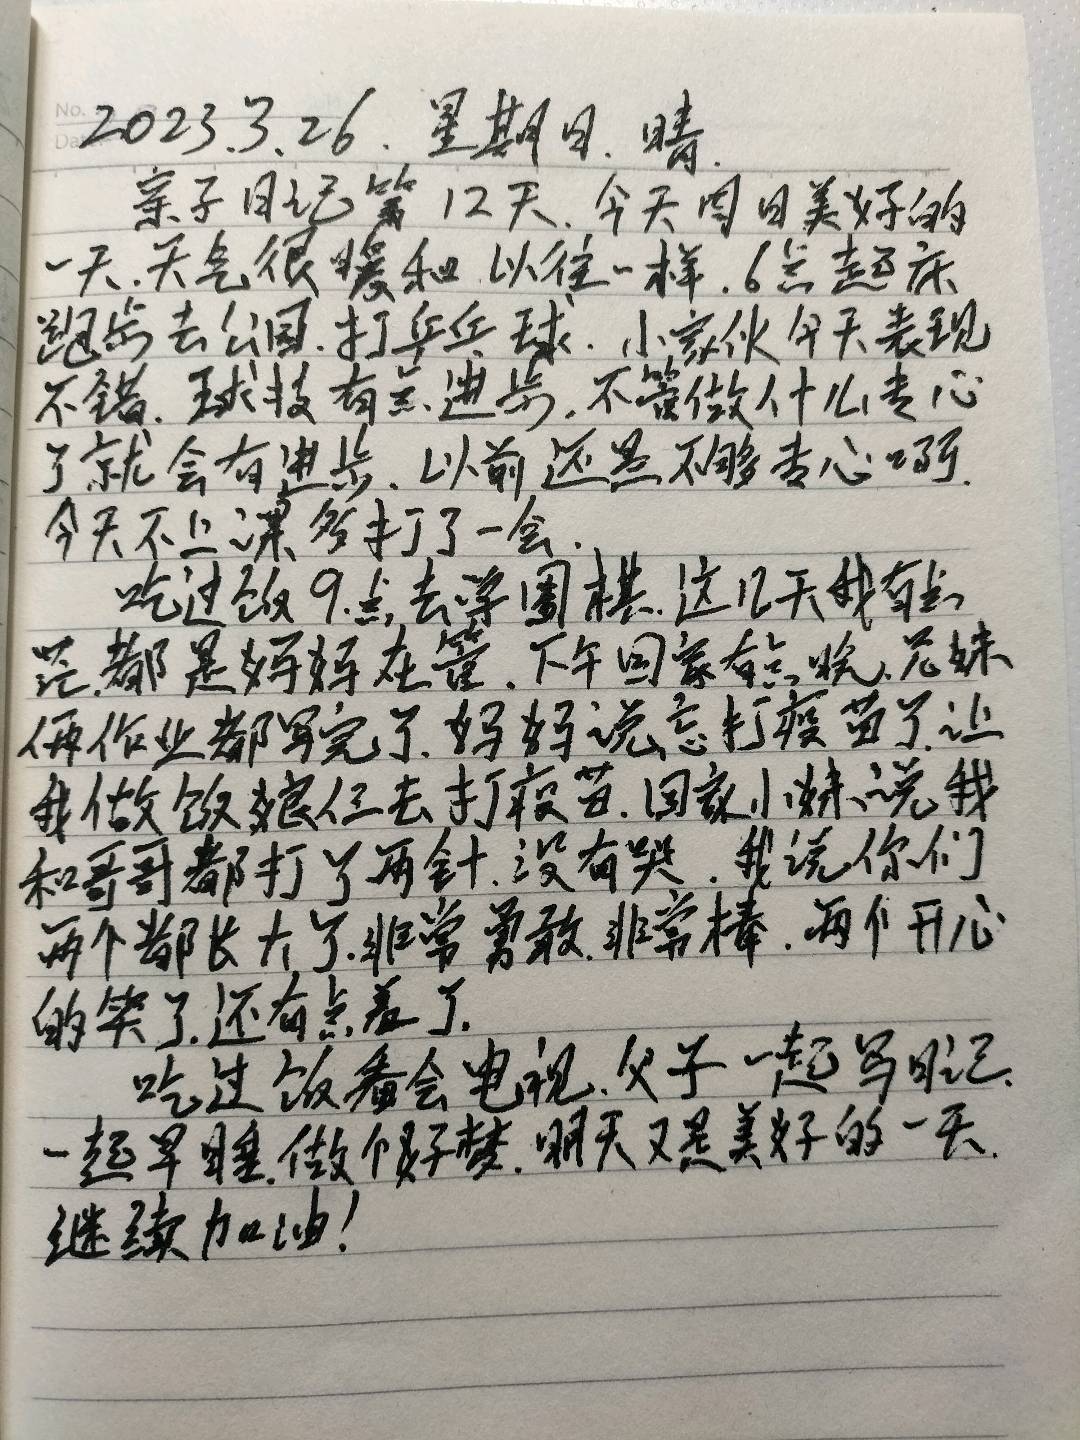 No.
Date
2023.3.26.星期日.晴.
亲子日记第12天.今天周日美好的
一天.天气很暖和 以往一样.6点起床
跑步去公园.打乒乓球.小家伙今天表现
不错.球技有点进步.不管做什么专心
了就会有进步.以前还是不够专心啊.
今天不上课多打了一会.
吃过饭9.点去学围棋.这几天我有点
忙.都是妈妈在管.下午回家有点晚.兄妹
俩作业都写完了.妈妈说忘打疫苗了.让
我做饭娘仨去打疫苗.回家小妹说我
和哥哥都打了两针.没有哭.我说你们
两个都长大了.非常勇敢.非常棒.两个开心
的笑了.还有点羞了.
吃过饭看会电视.父子一起写日记.
一起早睡.做个好梦.明天又是美好的一天.
继续加油!